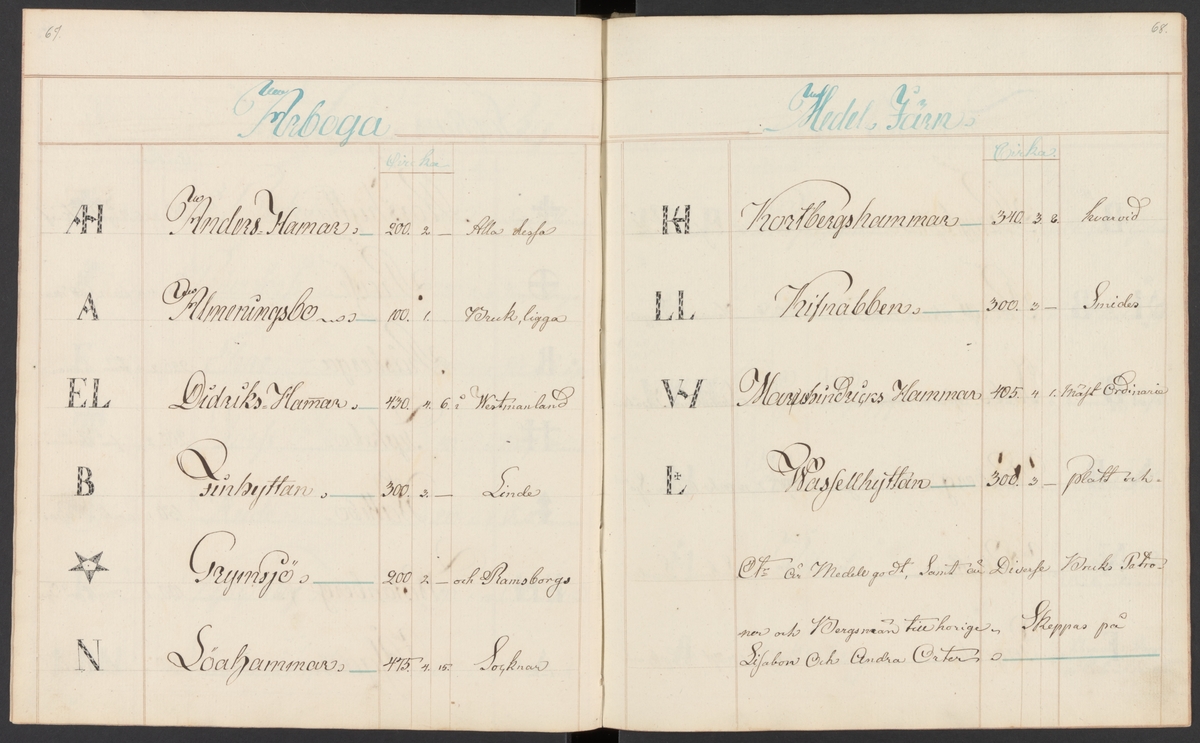 67.
Arboga
Cirka
AH Anders-Hamar 200. 2 — Alla dessa
A Almeningsbo 100. 1. Bruk, ligga
EL Didriks-Hamar 430. 4. 6. i Westmanland
B Finhyttan 300. 3. — Linde
Grymsjö 200 2. — och Ramsbergs
N Löahammar 475. 4. 15. Socknar
68.
Medel Järn
Cirka
KH Kortbergshammar 340. 3. 8. hvarvid
LL Kifnabben 300. 3 — Smides
W Hammar 405. 4 1. mäst Ordinarie
E Wasselhyttan 300. 3 — platt och
är Medel godt, Samt är Diverse Bruks Patro-
ner och Bergsmän tillhörige. Skeppas på
Lissabon Och Andra Orter